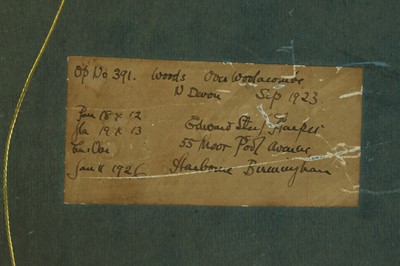 Op No 391. Woods Over Woolacombe
N Devon Sep 1923
18 x 12
19 x 13 Edward Steel Harper
55 Moor Pool Avenue
Jan 8 1926 Harborne Birmingham